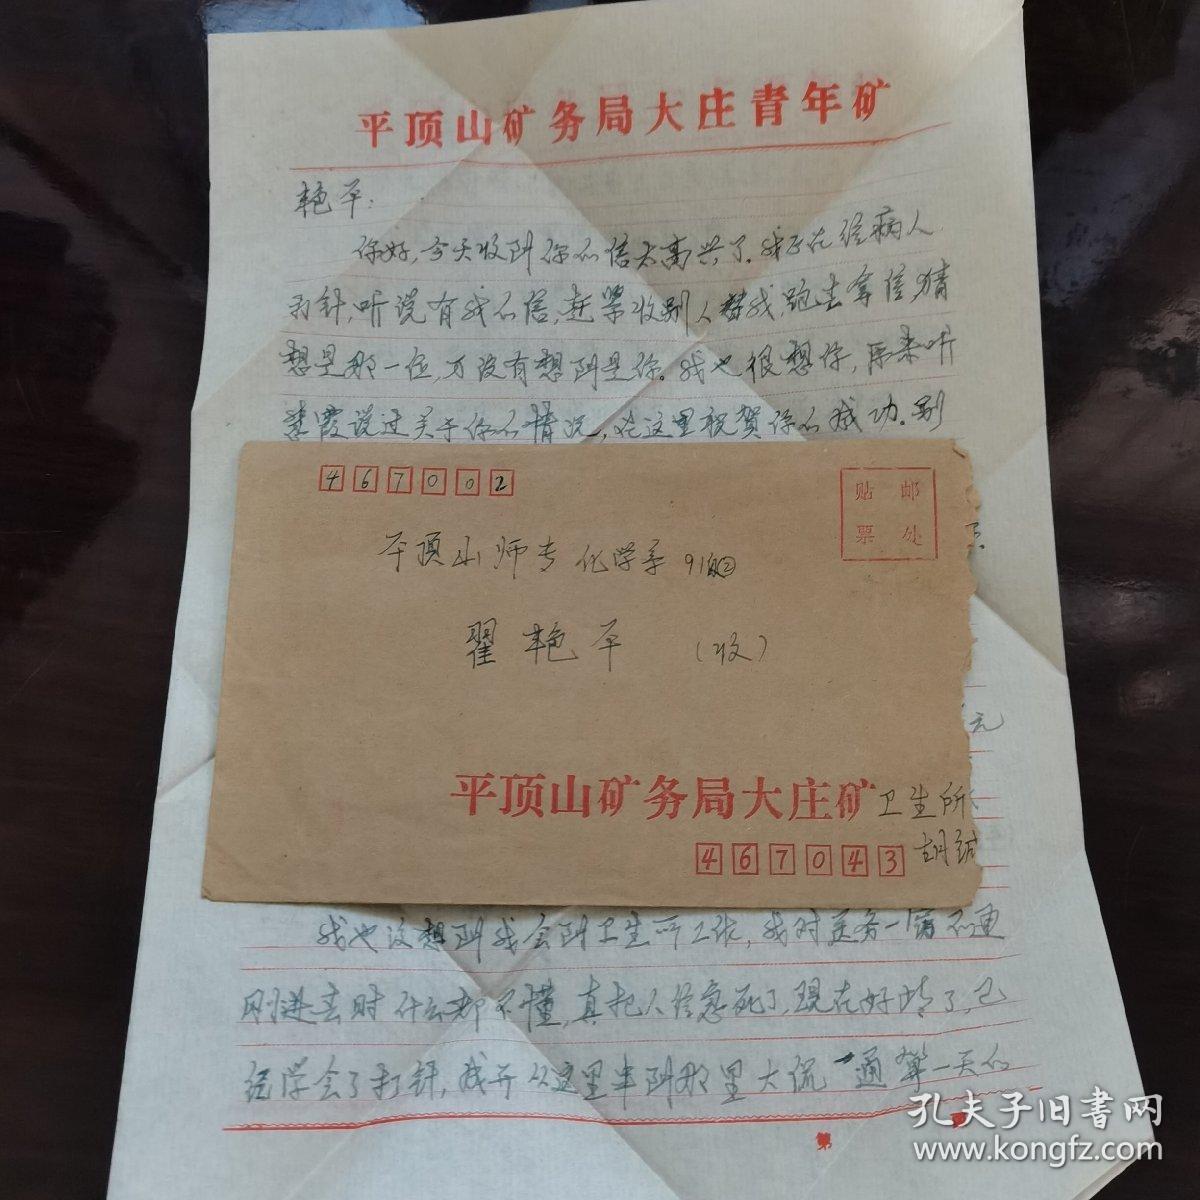 平顶山矿务局大庄青年矿
艳平：
你好，今天收到你的信太高兴了。我正在给病人
打针，听说有我的信，赶紧收别人替我，跑去拿信，猜
想是那一位，万没有想到是你。我也很想你，原来听
慧霞说过关于你的情况，在这里祝贺你的成功。别
467002
贴邮
票处
平顶山师专化学系91级②
翟艳平（收）
元
平顶山矿务局大庄矿卫生所
467043 胡
我也没想到我会到卫生所工作，我对医务一窍不通
刚进去时什么都不懂，真把人给急死了，现在好些了，已
经学会了打针，我并从这里串到那里大侃一通，算一天的
第
孔夫子旧书网
www.kongfz.com